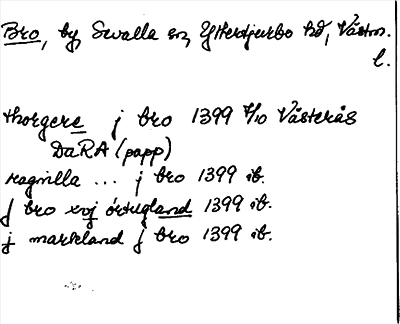 Bro, by, Sevalla sn, Yttertjurbo hd, Västm.
l.
thorgere j bro 1399 4/10 Västerås
DaRA (papp)
ragnilla ... j bro 1399 ib.
j bro xvj örtugland 1399 ib.
j markland j bro 1399 ib.